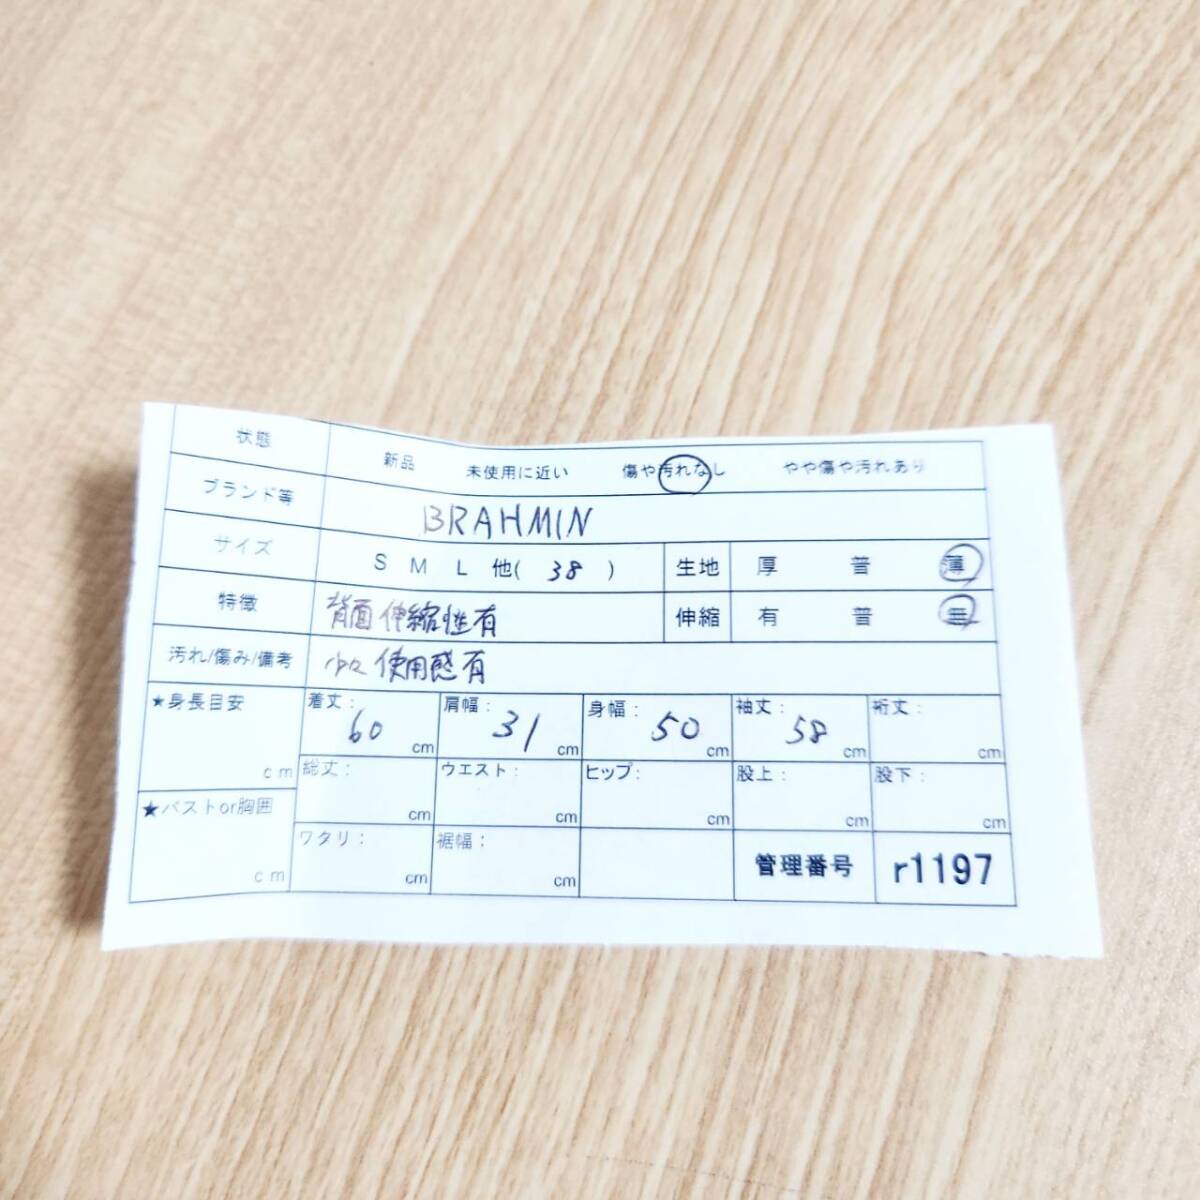 状態 新品 未使用に近い 傷や汚れなし やや傷や汚れあり
ブランド等 BRAHMIN
サイズ S M L 他( 38 ) 生地 厚 普 薄
特徴 背面伸縮性有 伸縮 有 普 無
汚れ/傷み/備考 少々使用感有
★身長目安 cm
着丈: 60 cm 肩幅: 31 cm 身幅: 50 cm 袖丈: 58 cm 裄丈: cm
総丈: cm ウエスト: cm ヒップ: cm 股上: cm 股下: cm
★バストor胸囲 cm
ワタリ: cm 裾幅: cm 管理番号 r1197